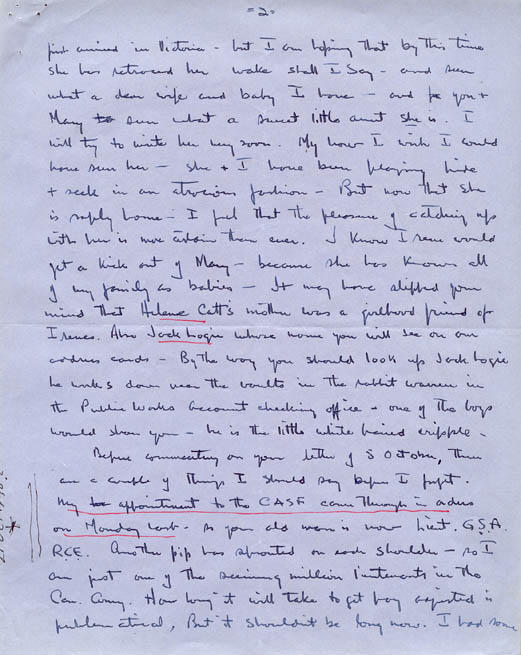 = 2 =
just arrived in Victoria - but I am hoping that by this time
she has retraced her wake shall I say - and seen
what a dear wife and baby I have - and you +
Mary to seen what a sweet little aunt she is. I
will try to write her very soon. My how I wish I could
have seen her - she + I have been playing hide
+ seek in an atrocious fashion - But now that she
is safely home - I feel that the pleasure of catching up
with her is more certain than ever. I know Irene would
get a kick out of Mary - because she has known all
of my family as babies - It may have slipped your
mind that Helene Catt's mother was a girlhood friend of
Irenes. Also Jack Logie whose name you will see on our
address cards - By the way you should look up Jack Logie
he works down near the vaults in the rabbit warren in
the Public Works Account checking office - one of the boys
would show you - he is the little white haired cripple.
Before commenting on your letter of 8 October, there
are a couple of things I should say before I forget.
My appointment to the CASF came through in orders
on Monday last - so your old man is now Lieut. G.S.A.
R.C.E. Another pip has sprouted on each shoulder - so I
am just one of the seeming million lieutenants in the
Can. Army. How long it will take to get pay adjusted is
problematical, But it shouldn't be long now. I had some